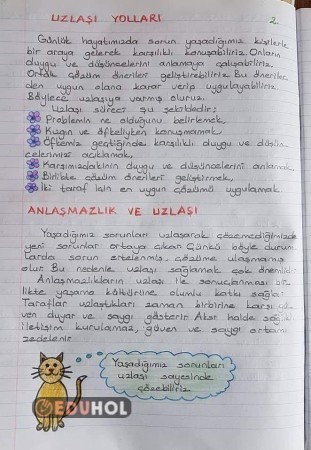 UZLAŞI YOLLARI
2.
Günlük hayatımızda sorun yaşadığımız kişilerle
bir araya gelerek karşılıklı konuşabiliriz. Onların
duygu ve düşüncelerini anlamaya çalışabiliriz.
Ortak çözüm önerileri geliştirebiliriz. Bu öneriler
den uygun olana karar verip uygulayabiliriz.
Böylece uzlaşıya varmış oluruz.
Uzlaşı süreci şu şekildedir;
Problemin ne olduğunu belirlemek,
Kızgın ve öfkeliyken konuşmamak,
Öfkemiz geçtiğinde karşılıklı duygu ve düşün
celerimizi açıklamak,
Karşımızdakinin duygu ve düşüncelerini anlamak,
Birlikte çözüm önerileri geliştirmek,
İki taraf için en uygun çözümü uygulamak.
ANLAŞMAZLIK VE UZLAŞI
Yaşadığımız sorunları uzlaşarak çözemediğimizde
yeni sorunlar ortaya çıkar. Çünkü böyle durum
larda sorun ertelenmiş, çözüme ulaşmamış
olur. Bu nedenle uzlaşı sağlamak çok önemlidir.
Anlaşmazlıkların uzlaşı ile sonuçlanması bir
likte yaşama kültürüne olumlu katkı sağlar.
Taraflar uzlaştıkları zaman birbirine karşı gü
ven duyar ve saygı gösterir. Aksi halde sağlıklı
iletişim kurulamaz, güven ve saygı ortamı
zedelenir.
Yaşadığımız sorunları
uzlaşı sayesinde
çözebiliriz.
EDUHOL